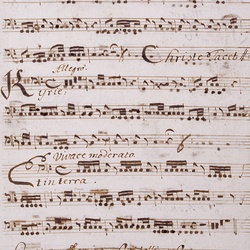 Christe Tacet
Allegro.
Kyrie.
Vivace moderato
Et in terra.